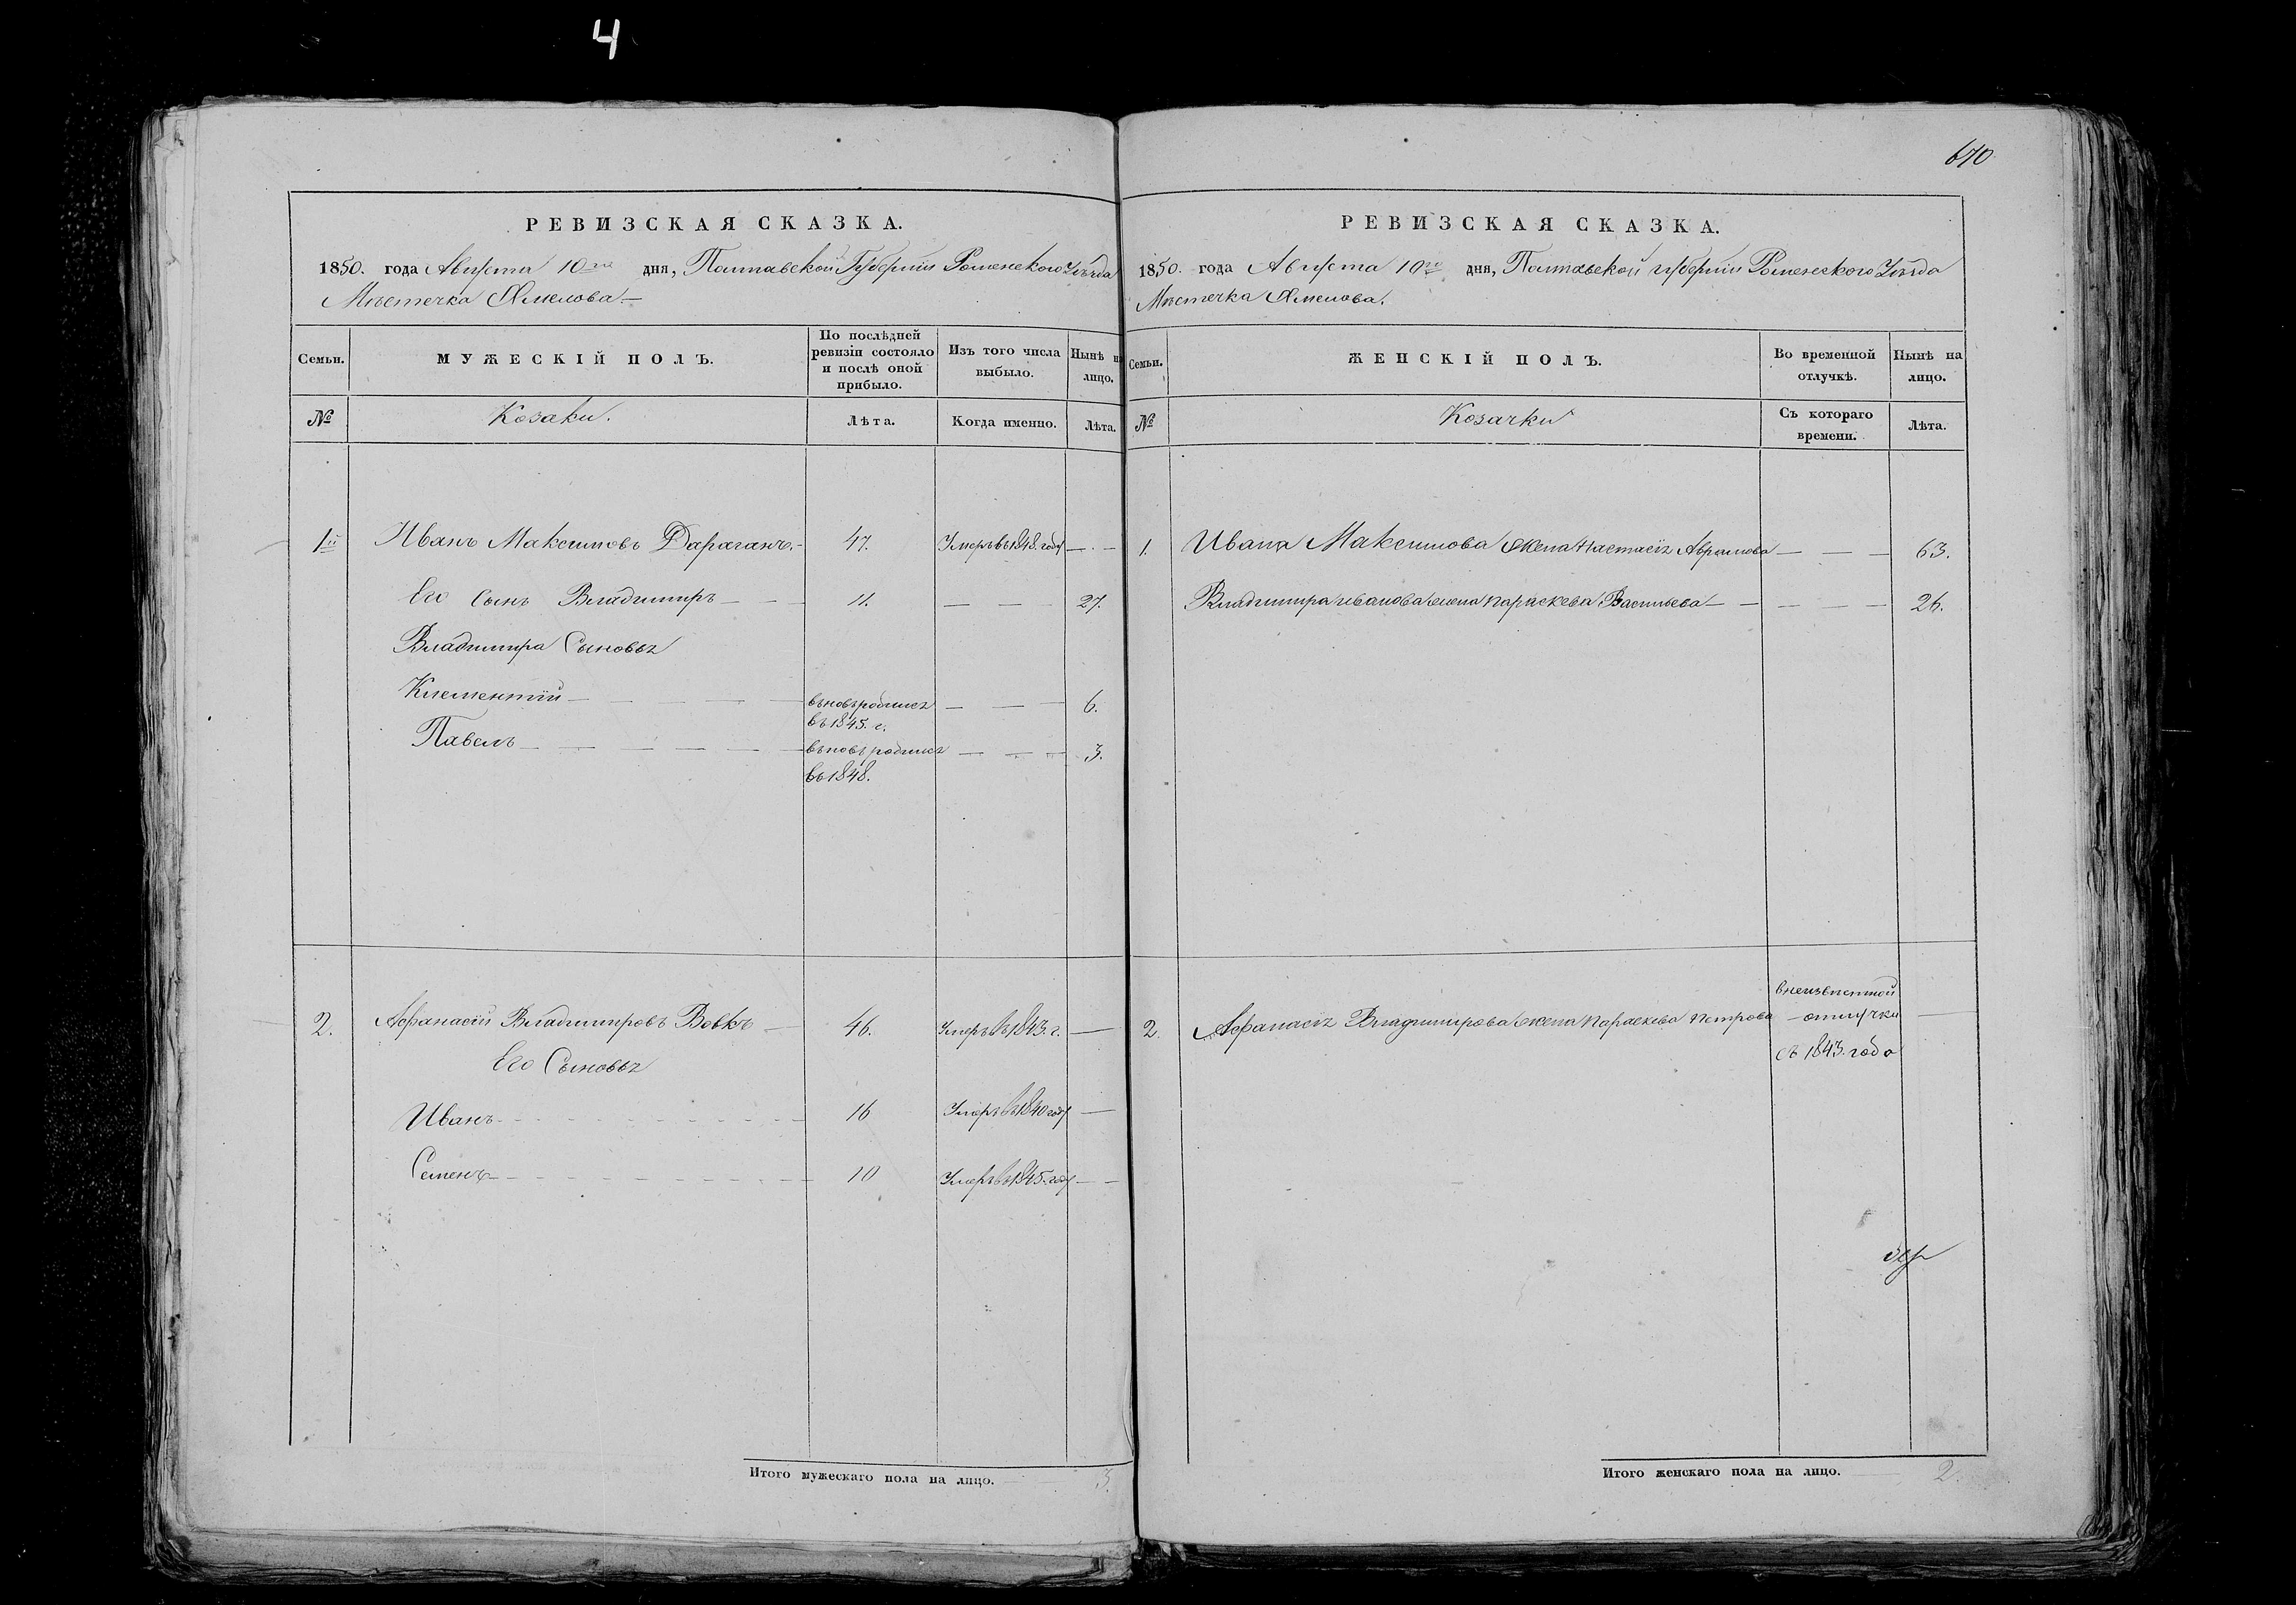 4
670
РЕВИЗСКАЯ СКАЗКА.
1850. года Августа 10го дня, Полтавской Губернии Роменского Уѣзда
Мѣстечка Смелова.
Семьи.
МУЖЕСКІЙ ПОЛЪ.
По послѣдней
ревизіи состояло
и послѣ оной
прибыло.
Изъ того числа
выбыло.
Нынѣ на
лицо.
№
Козаки.
Лѣта.
Когда именно.
Лѣта.
1й Иванъ Максимовъ Дараганъ. 47. Умеръ въ 1848. году
Его Сынъ Владимиръ 11. 27.
Владимира Сыновья
Климентій вновь родился 6.
въ 1845. г.
Павелъ вновь родился 3.
въ 1848.
2. Афанасій Владимировъ Вовкъ 46. Умеръ въ 1843. г.
Его Сыновья
Иванъ 16 Умеръ въ 1840 году
Семенъ 10 Умеръ въ 1845. году
Итого мужескаго пола на лицо. 3.
РЕВИЗСКАЯ СКАЗКА.
1850. года Августа 10го дня, Полтавской губернии Роменского Уѣзда
Мѣстечка Смелова.
Семьи.
ЖЕНСКІЙ ПОЛЪ.
Во временной
отлучкѣ.
Нынѣ на
лицо.
№
Козачки
Съ котораго
времени.
Лѣта.
1. Ивана Максимова жена Настасія Аврамова 63.
Владимира Иванова жена Параскева Васильева 26.
2. Афанасія Владимирова жена Параскева Петрова
в неизвестной
отлучки
съ 1843. года
Итого женскаго пола на лицо. 2.